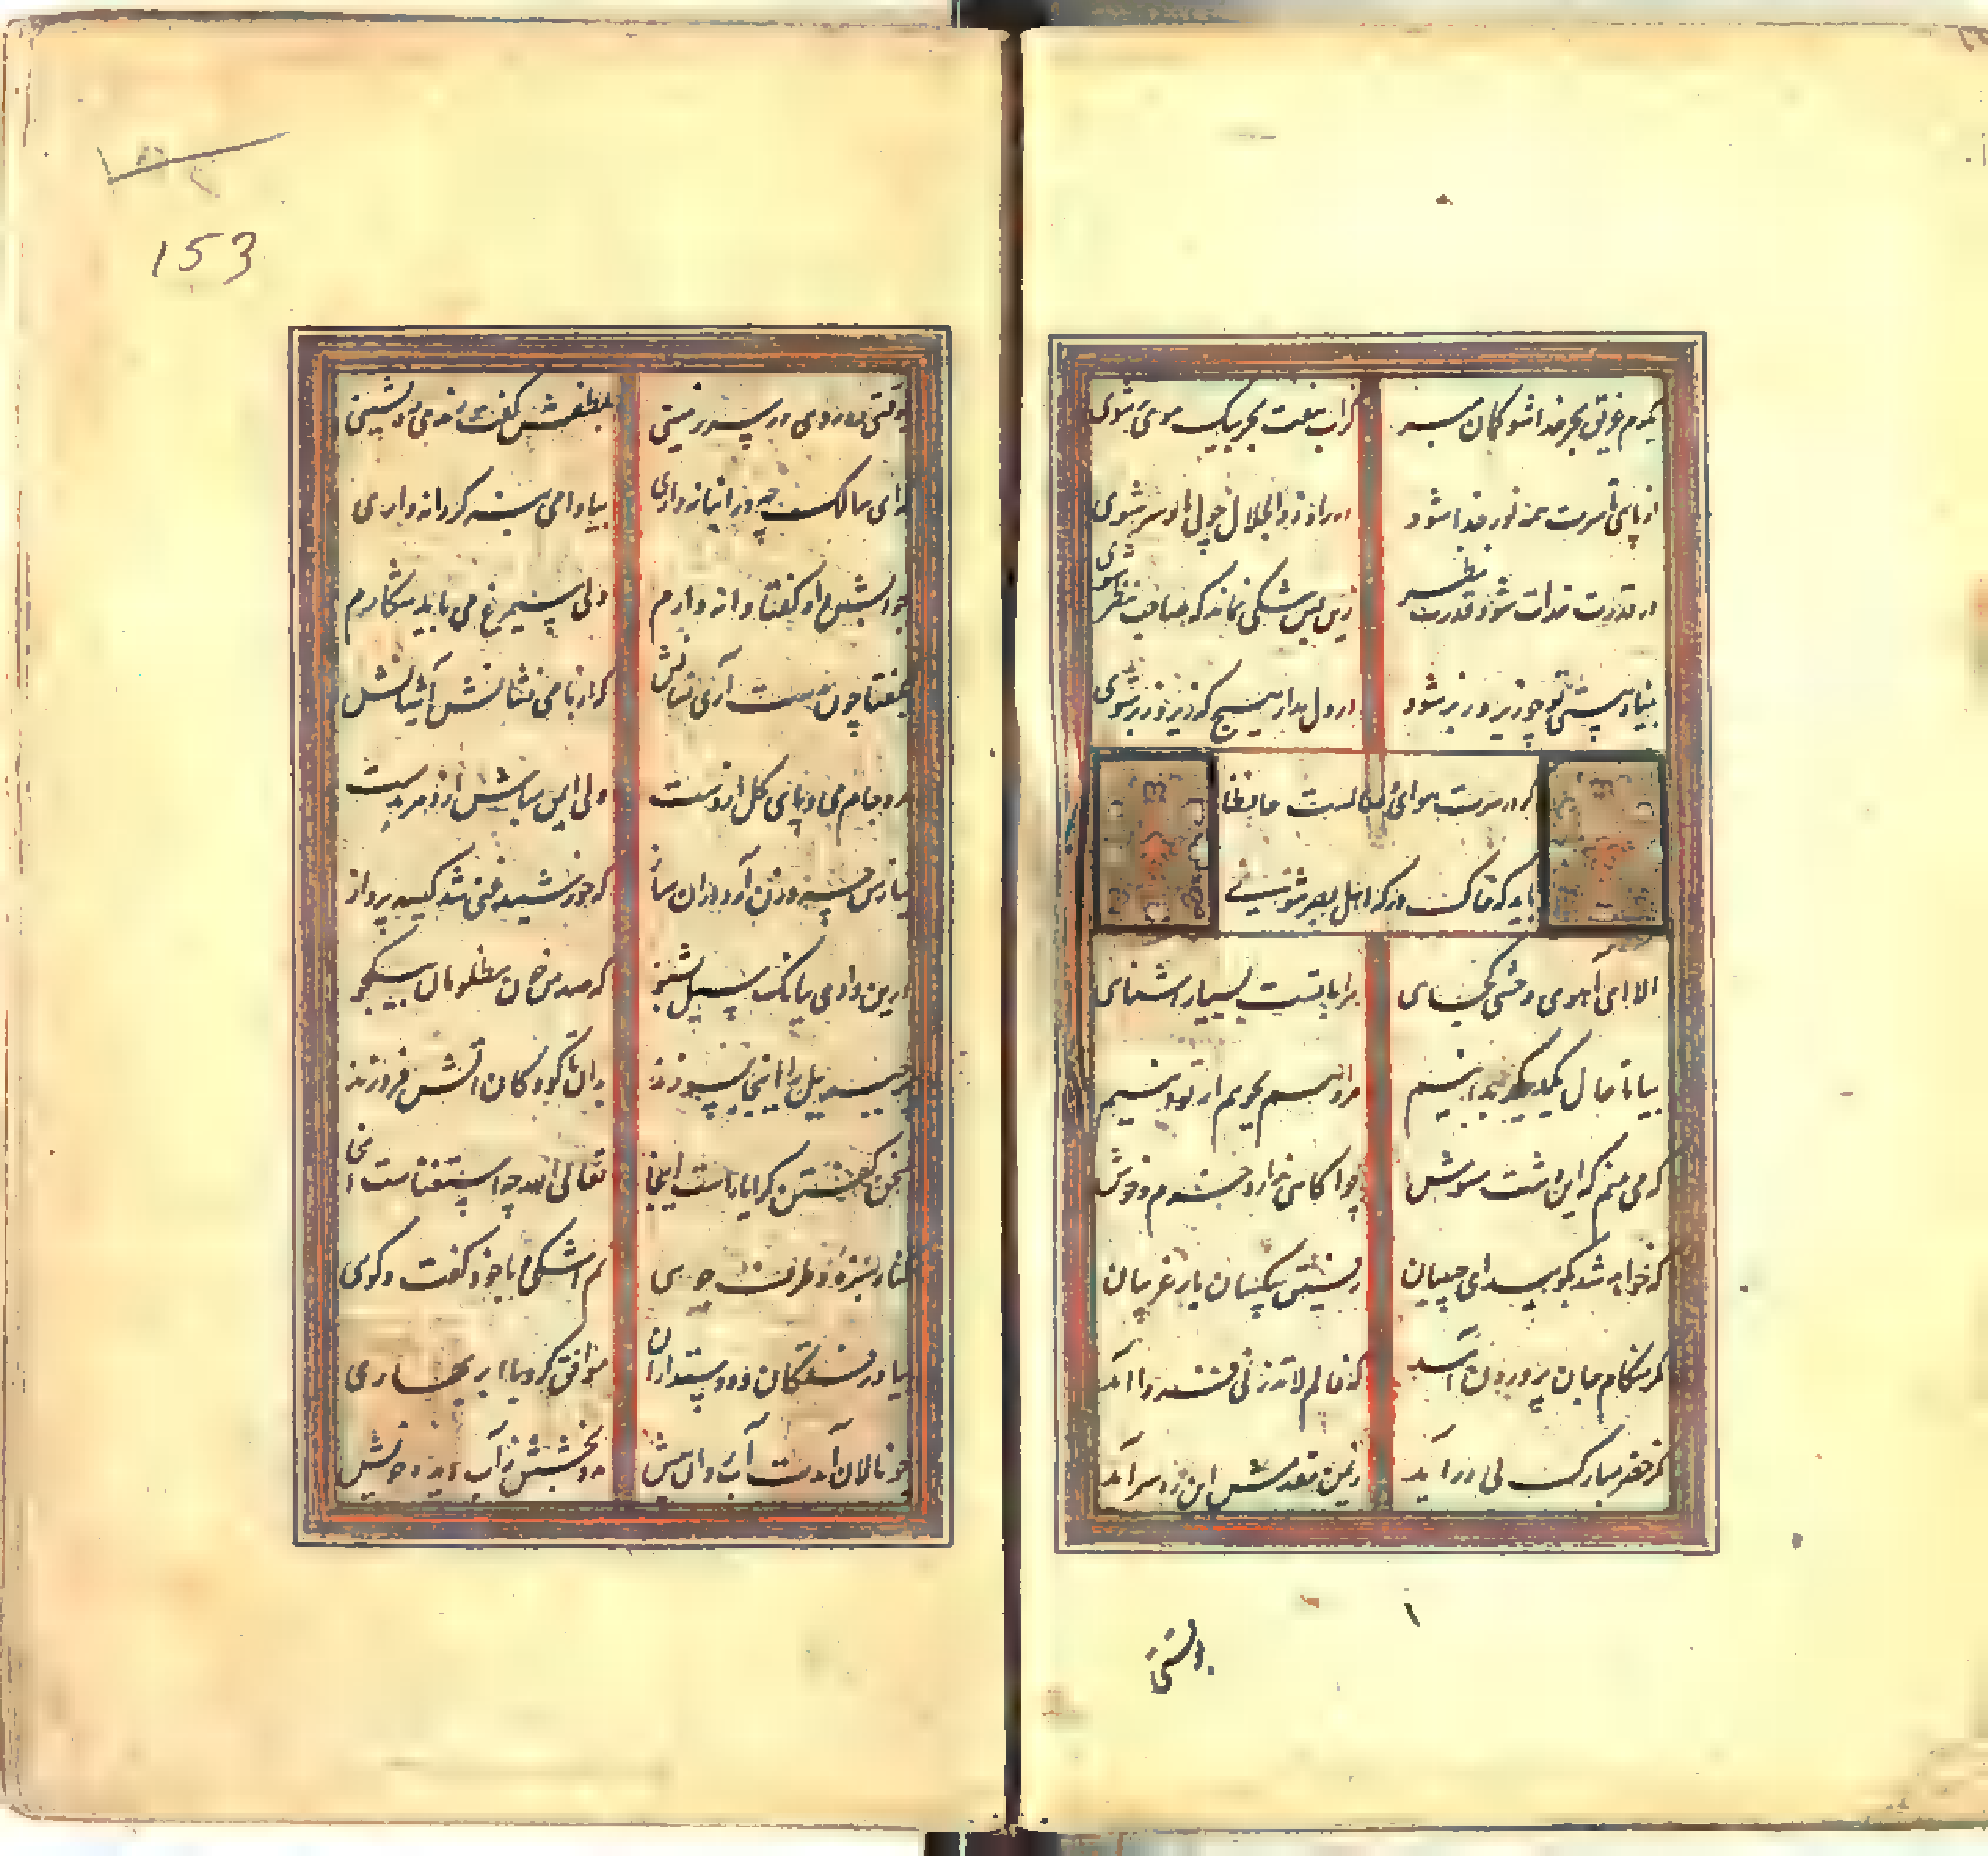 یکدم غریق بحر خدا شو گمان مبر
کز آب هفت بحر بیک موی تر شوی
از پای تا سرت همه نور خدا شود
در راه ذوالجلال چو بی پا و سر شوی
در قدرت خدات شود قدرت نظر
زین پس شکی نماند که صاحب نظر شوی
بنیاد هستی تو چو زیر و زبر شود
در دل مدار هیچ که زیر و زبر شوی
گر در سرت هوای وصالست حافظا
باید که خاک درگه اهل بصر شوی
الا ای آهوی وحشی کجای
مرا با تست بسیار آشنای
بیا تا حال یکدیگر بدانیم
مراد هم بجویم ار توانیم
که می بینم که این دشت مشوش
چراگاهی ندارد خرم و خوش
که خواهد شد بگویید ای حبیبان
رفیق بیکسان یار غریبان
مگر هنگام جان پروردن آمد
که فالم لا تذرنی فردا آمد
مگر خضر مبارک پی درآید
ز یمن مقدمش این ره سرآید
153
که روزی رهروی در سرزمینی
بلطفش گفت رندی ره نشینی
که ای سالک چه در انبانه داری
بیا دامی بنه گر دانه داری
جوابش داد و گفتا دانه دارم
ولی سیمرغ می باید شکارم
بگفتا چون بدست آری نشانش
که از ما بی نشانست آشیانش
مده جام می و پای گل از دست
ولی این مباش از دهر بدمست
نیاز من چه وزن آرد بدان ساز
که خورشید غنی شد کیسه پرداز
درین وادی ببانگ سیل بشنو
که صد من خون مظلومان بیکجو
پر جبریل را اینجا بسوزند
بدان تا کودکان آتش فروزند
سخن گفتن کرا یاراست اینجا
تعالی الله چه استغناست اینجا
کنار سبزه و طرف جوی
نم اشکی و با خود گفت و گوی
بیاد رفتگان و دوستداران
موافق گرد با ابر بهاری
چو نالان آمدت آب روان پیش
مدد بخشش ز آب دیده خویش